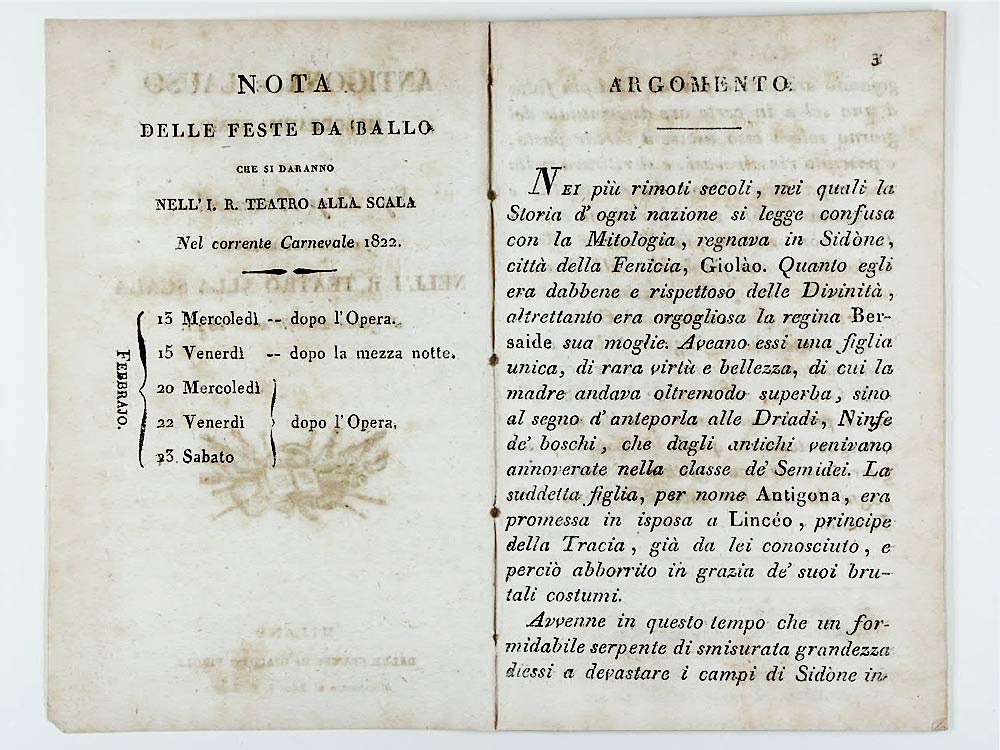 NOTA
DELLE FESTE DA BALLO
CHE SI DARANNO
NELL' I. R. TEATRO ALLA SCALA
Nel corrente Carnevale 1822.
FEBBRAJO.
13 Mercoledì -- dopo l'Opera.
15 Venerdì -- dopo la mezza notte.
20 Mercoledì
22 Venerdì dopo l'Opera.
23 Sabato
3
ARGOMENTO.
NEI più rimoti secoli, nei quali la
Storia d'ogni nazione si legge confusa
con la Mitologia, regnava in Sidòne,
città della Fenicia, Giolào. Quanto egli
era dabbene e rispettoso delle Divinità,
altrettanto era orgogliosa la regina Ber-
saide sua moglie. Aveano essi una figlia
unica, di rara virtù e bellezza, di cui la
madre andava oltremodo superba, sino
al segno d'anteporla alle Driadi, Ninfe
de' boschi, che dagli antichi venivano
annoverate nella classe de' Semidei. La
suddetta figlia, per nome Antigona, era
promessa in isposa a Lincéo, principe
della Tracia, già da lei conosciuto, e
perciò abborrito in grazia de' suoi bru-
tali costumi.
Avvenne in questo tempo che un for-
midabile serpente di smisurata grandezza
diessi a devastare i campi di Sidòne in